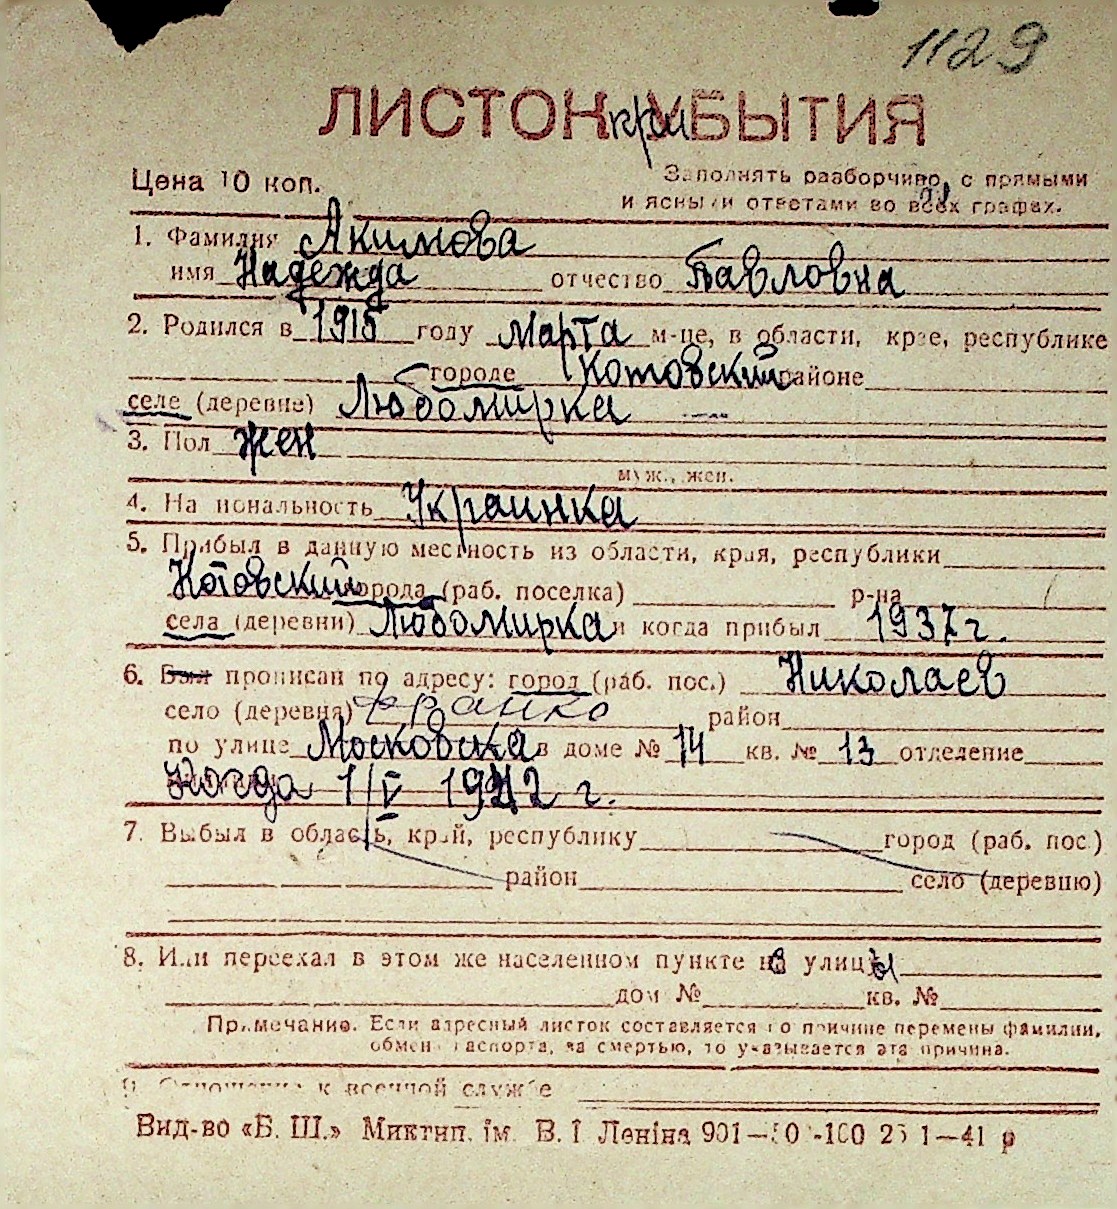 1129
ЛИСТОК при УБЫТИЯ
Цена 10 коп.
Заполнять разборчиво, с прямыми
и ясными ответами во всех графах.
1. Фамилия Акимова
имя Надежда отчество Павловна
2. Родился в 1915 году Марта м-це, в области, крае, республике
городе Котовский районе
селе (деревне) Любомирка
3. Пол жен
муж., жен.
4. Национальность Украинка
5. Прибыл в данную местность из области, края, республики
Котовский города (раб. поселка) р-на
села (деревни) Любомирка и когда прибыл 1937 г.
6. Был прописан по адресу: город (раб. пос.) Николаев
село (деревня) Франко район
по улице Московска в доме № 14 кв. № 13 отделение
Когда 1/V 1942 г.
7. Выбыл в область, край, республику город (раб. пос.)
район село (деревню)
8. Или переехал в этом же населенном пункте в улицы
дом № кв. №
Примечание. Если адресный листок составляется по причине перемены фамилии,
обмена паспорта, за смертью, то указывается эта причина.
9. Отношение к военной службе
Вид-во «Б. Ш.» Миктип. ім. В. І Леніна 901— -100 25 1—41 р